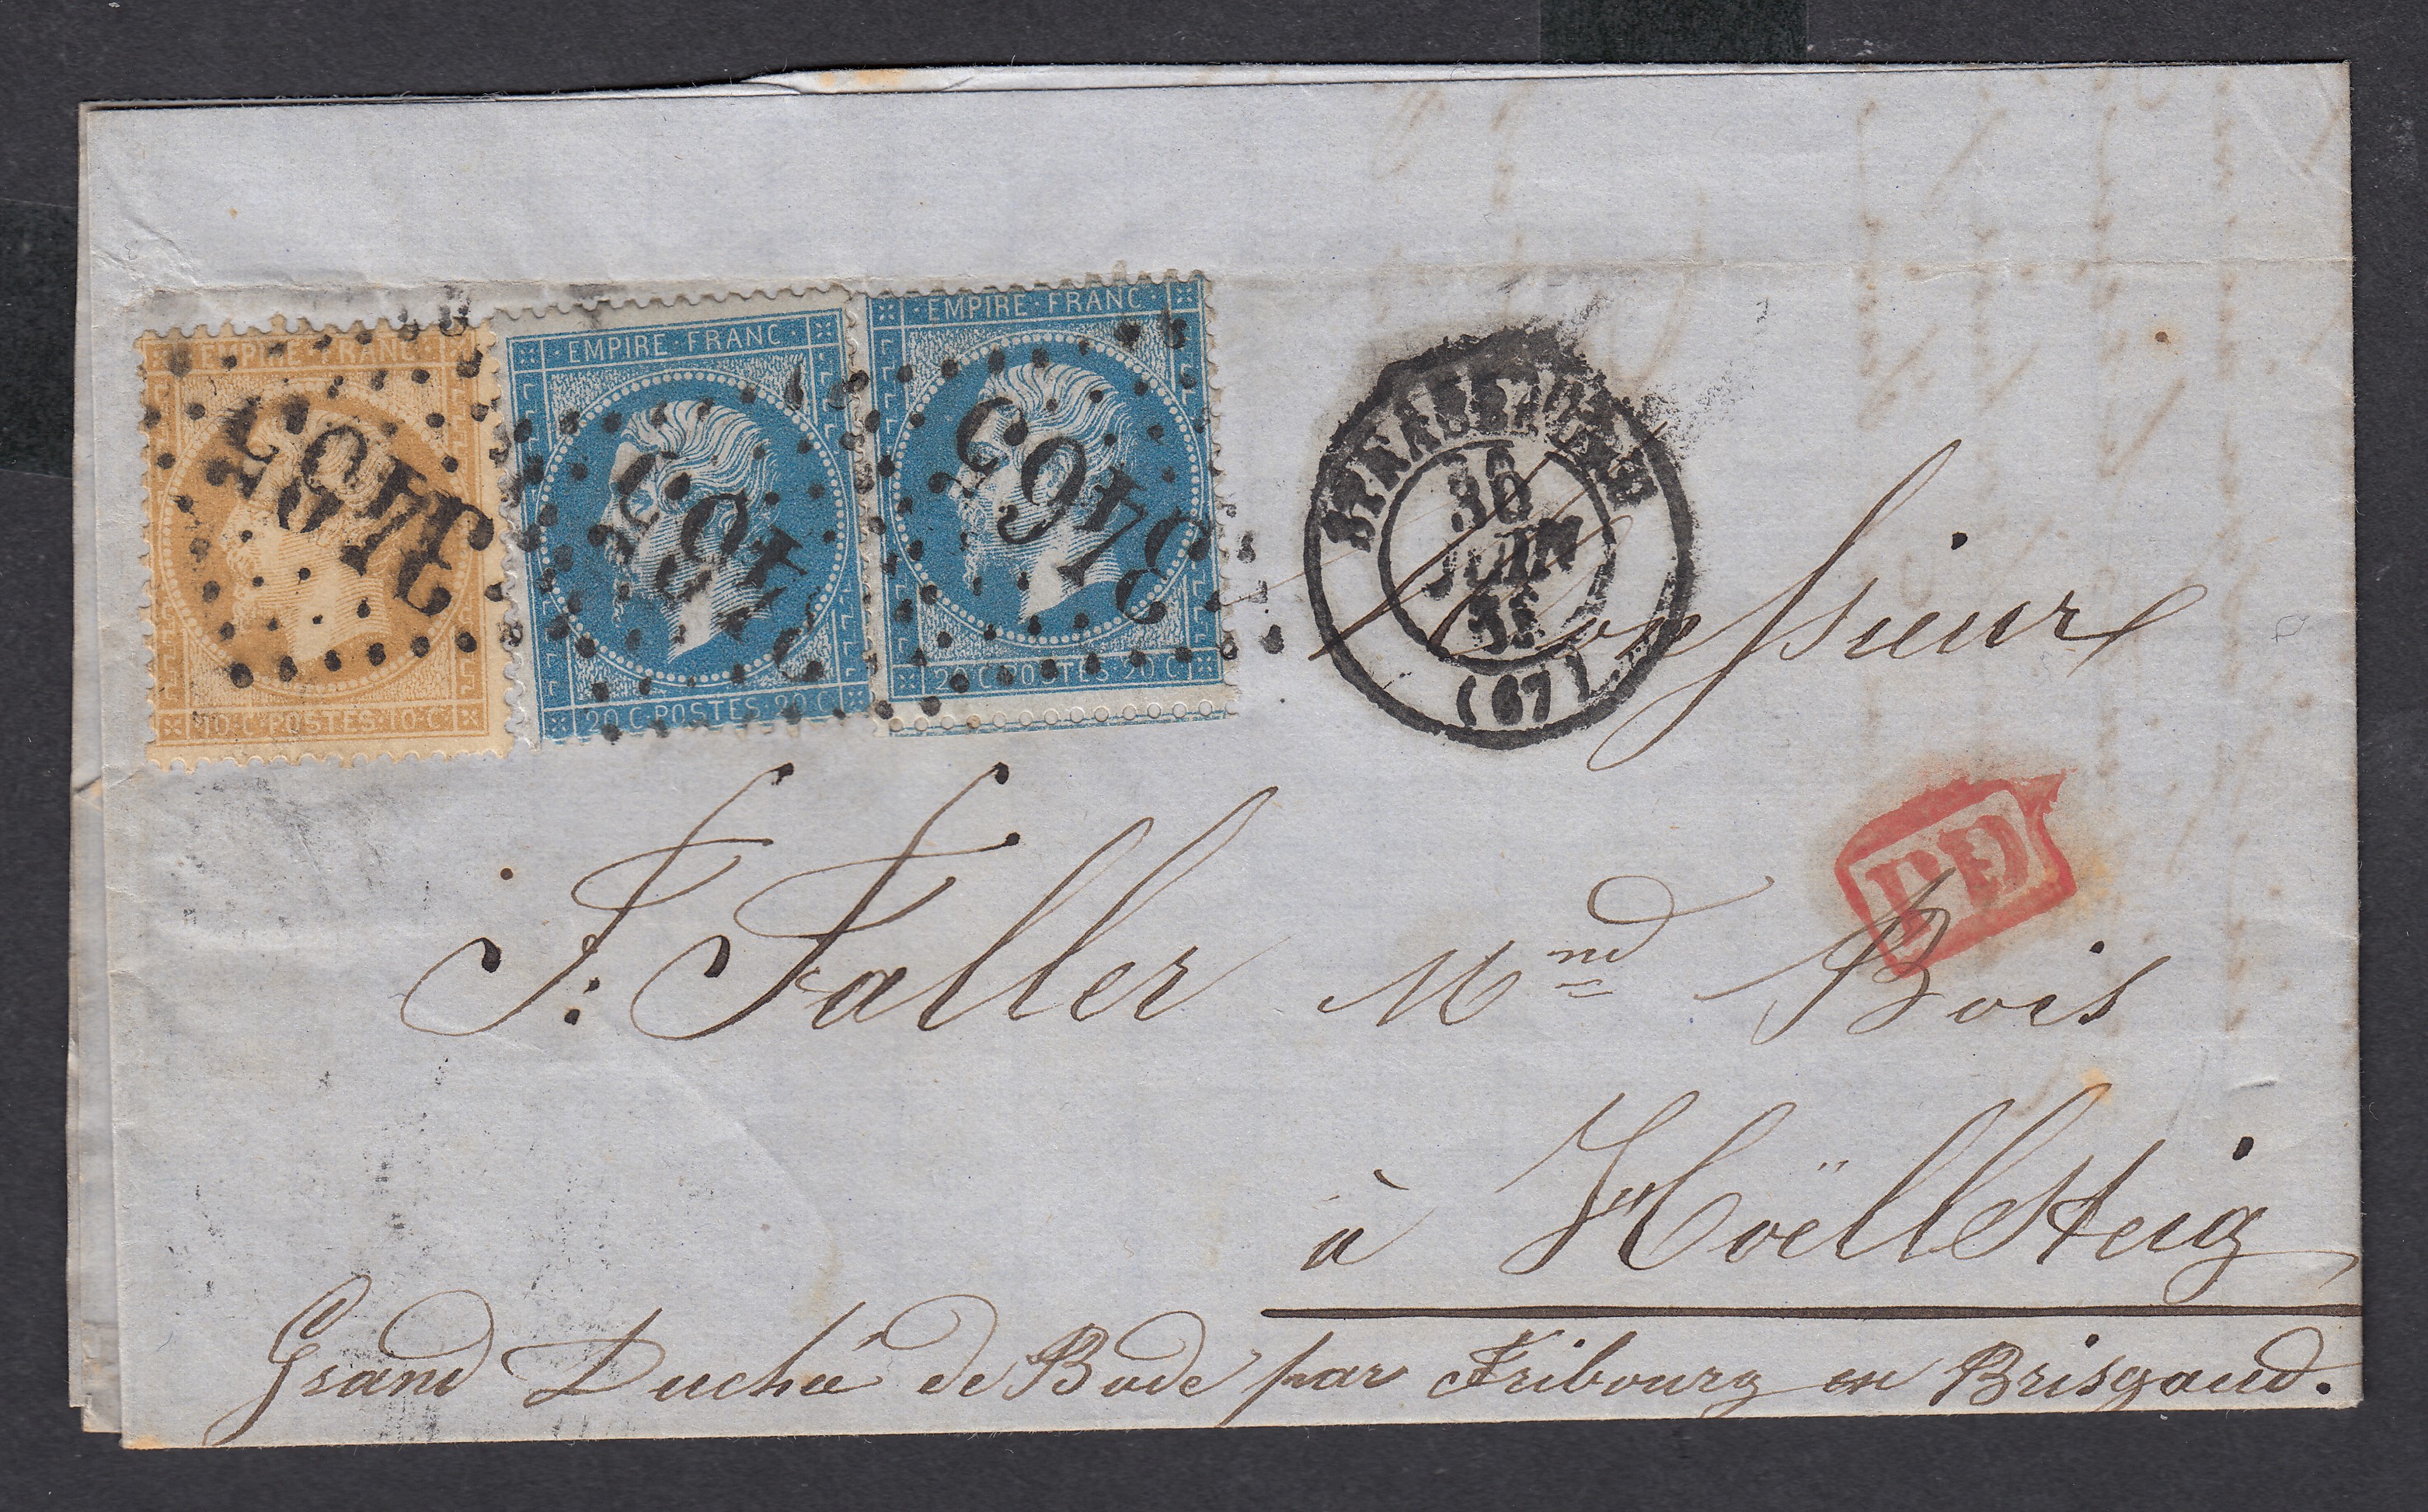 EMPIRE · FRANC
10 C · POSTES · 10 C
EMPIRE · FRANC
20 C · POSTES · 20 C
EMPIRE · FRANC
20 C · POSTES · 20 C
3465
STRASBOURG
30
JUIN
(67)
PD
Monsieur
F. Faller Mnd Bois
à Hoëllsteig
Grand Duché de Bade par Fribourg en Brisgaud.